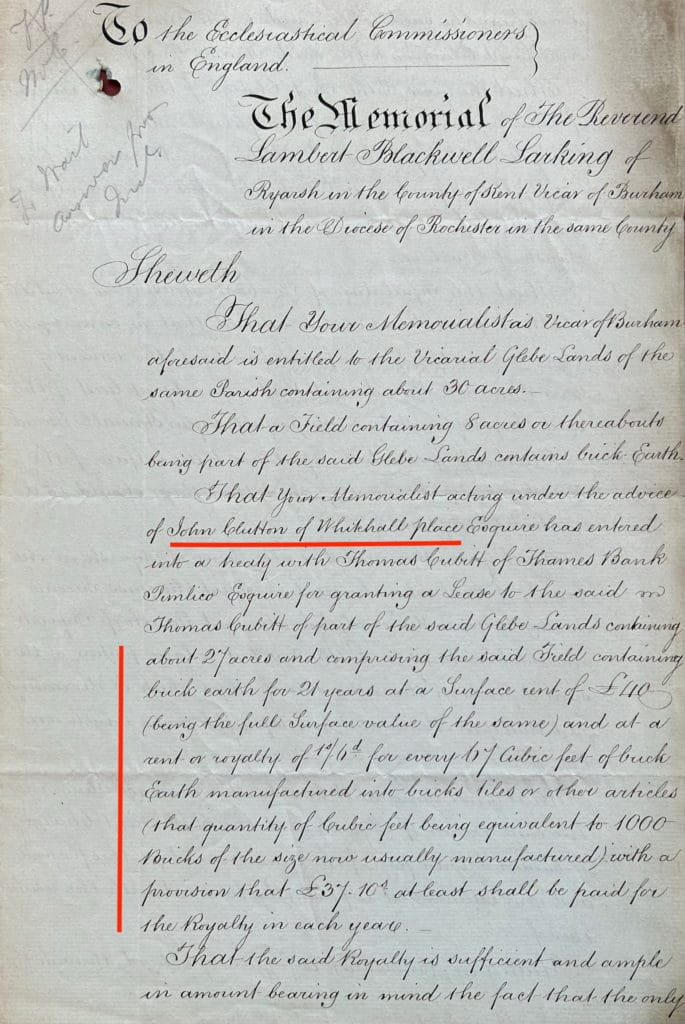 To the Ecclesiastical Commissioners
in England.
The Memorial of The Reverend
Lambert Blackwell Larking of
Ryarsh in the County of Kent Vicar of Burham
in the Diocese of Rochester in the same County
To Wait
answer from
Sheweth
That Your Memorialist as Vicar of Burham
aforesaid is entitled to the Vicarial Glebe Lands of the
same Parish containing about 30 acres.
That a Field containing 8 acres or thereabouts
being part of the said Glebe Lands contains brick Earth.
That Your Memorialist acting under the advice
of John Clutton of Whitehall place Esquire has entered
into a treaty with Thomas Cubitt of Thames Bank
Pimlico Esquire for granting a Lease to the said
Thomas Cubitt of part of the said Glebe Lands containing
about 27 acres and comprising the said Field containing
brick earth for 21 years at a Surface rent of £40
(being the full Surface value of the same) and at a
rent or royalty of 1s/6d for every 67 Cubic feet of brick
Earth manufactured into bricks tiles or other articles
(that quantity of Cubic feet being equivalent to 1000
Bricks of the size now usually manufactured) with a
provision that £37.10s at least shall be paid for
the Royalty in each year.
That the said Royalty is sufficient and ample
in amount bearing in mind the fact that the only